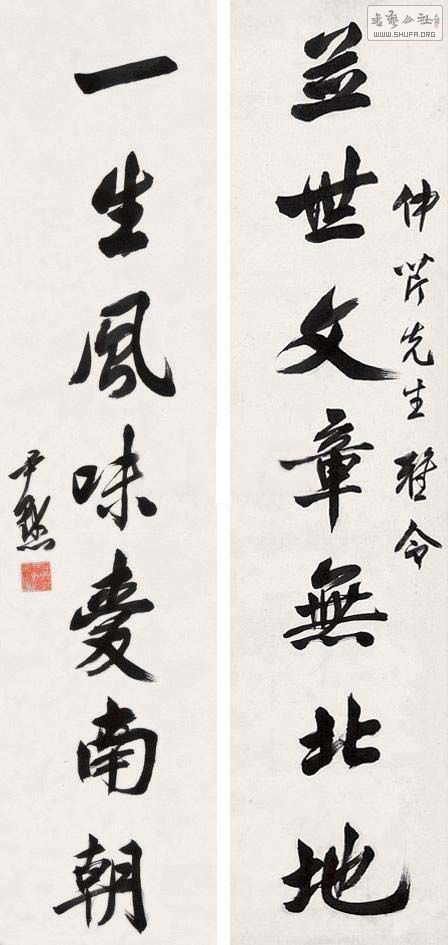 书艺公社
WWW.SHUFA.ORG
仲芹先生雅令
並世文章無北地
一生風味愛南朝
尹默